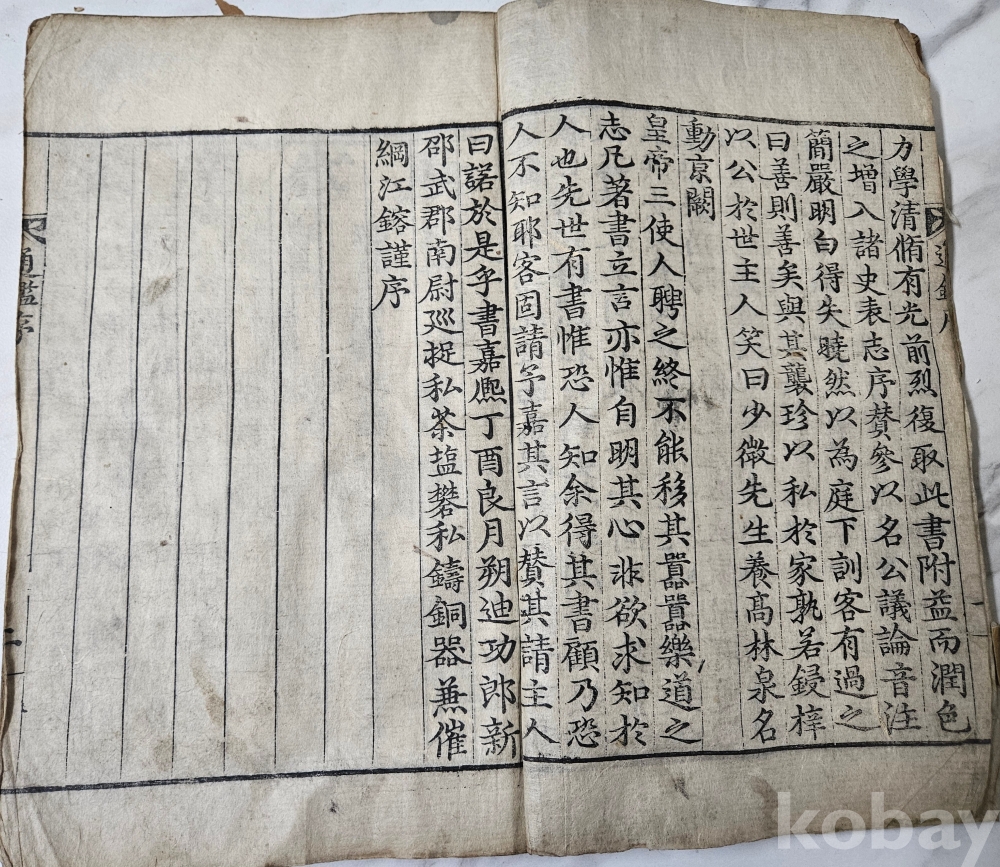 力學清脩有光前烈復取此書附益而潤色
之增入諸史表志序賛參以名公議論音注
簡嚴明白得失曉然以為庭下訓客有過之
曰善則善矣與其襲珍以私於家孰若鋟梓
以公於世主人笑曰少微先生養髙林泉名
動京闕
皇帝三使人聘之終不能移其囂囂樂道之
志凡著書立言亦惟自明其心非欲求知於
人也先世有書惟恐人知余得其書顧乃恐
人不知耶客固請予嘉其言以賛其請主人
曰諾於是乎書嘉熈丁酉良月朔迪功郎新
邵武郡南尉廵捉私茶塩礬私鑄銅器兼催
綱江鎔謹序
通鑑序
二
kobay